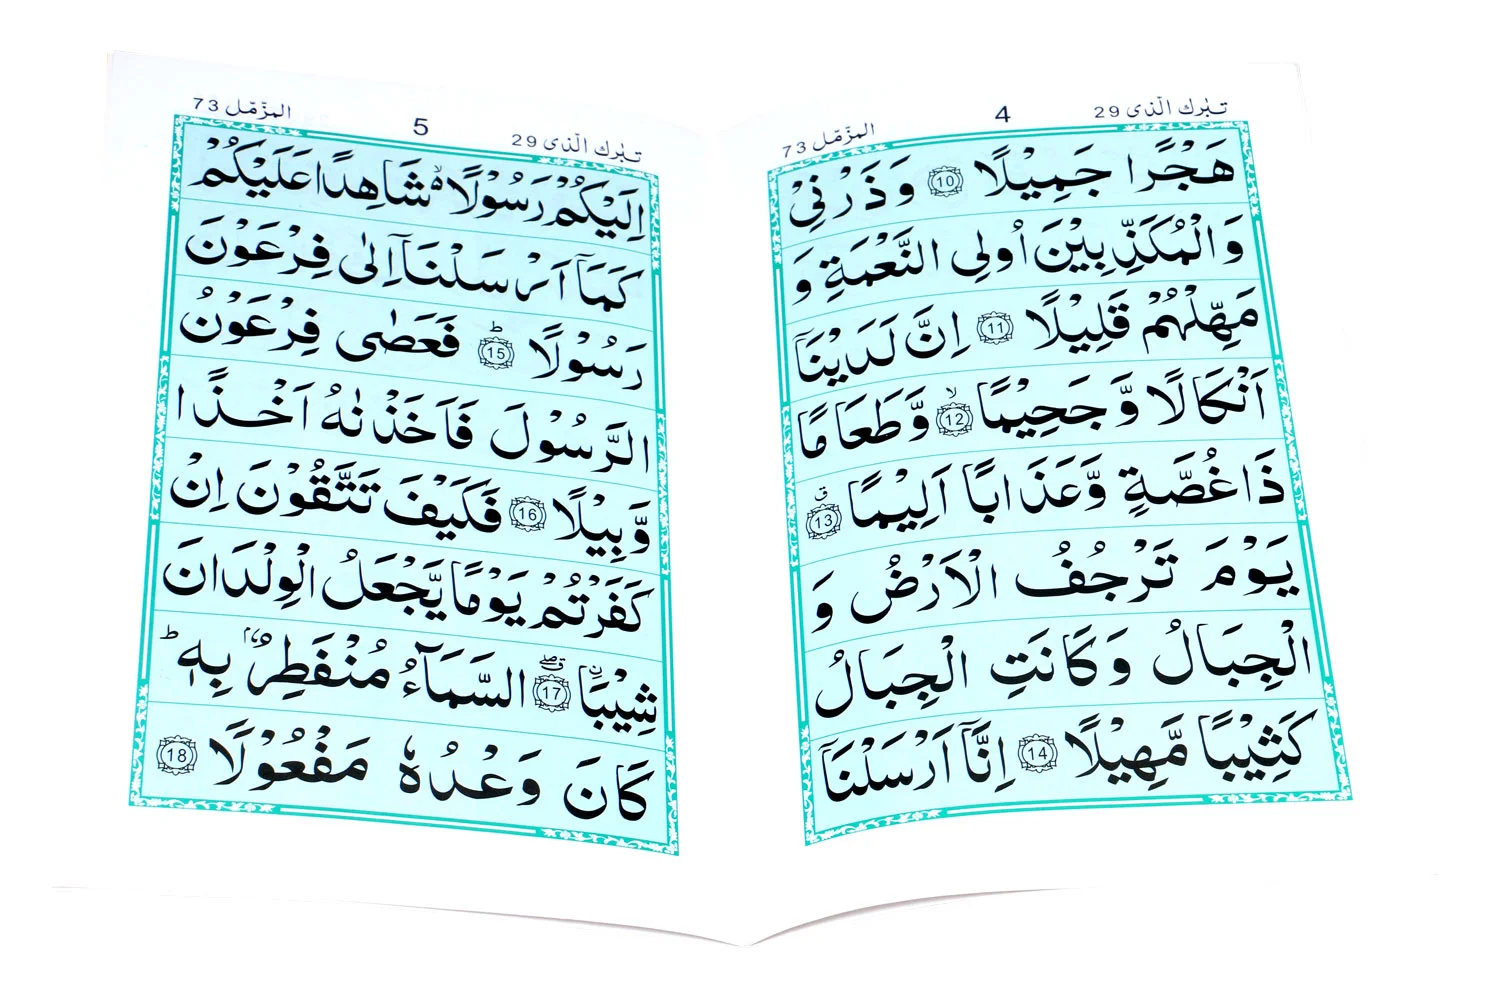 تبٰرك الّذی 29
4
المزّمّل 73
هَجْرًا جَمِيْلًا 10 وَذَرْنِیْ
وَالْمُكَذِّبِيْنَ اُولِی النَّعْمَةِ وَ
مَهِّلْهُمْ قَلِيْلًا 11 اِنَّ لَدَيْنَاۤ
اَنْكَالًا وَّجَحِيْمًا ۙ 12 وَّطَعَامًا
ذَا غُصَّةٍ وَّعَذَابًا اَلِيْمًا ۗ 13
يَوْمَ تَرْجُفُ الْاَرْضُ وَ
الْجِبَالُ وَكَانَتِ الْجِبَالُ
كَثِيْبًا مَّهِيْلًا 14 اِنَّاۤ اَرْسَلْنَاۤ
تبٰرك الّذی 29
5
المزّمّل 73
اِلَيْكُمْ رَسُوْلًا ۙ۬ شَاهِدًا عَلَيْكُمْ
كَمَاۤ اَرْسَلْنَاۤ اِلٰی فِرْعَوْنَ
رَسُوْلًا ؕ 15 فَعَصٰی فِرْعَوْنُ
الرَّسُوْلَ فَاَخَذْنٰهُ اَخْذًا
وَّبِيْلًا 16 فَكَيْفَ تَتَّقُوْنَ اِنْ
كَفَرْتُمْ يَوْمًا يَّجْعَلُ الْوِلْدَانَ
شِيْبَا ۗۖ 17 السَّمَآءُ مُنْفَطِرٌۢ بِهٖ ؕ
كَانَ وَعْدُهٗ مَفْعُوْلًا 18